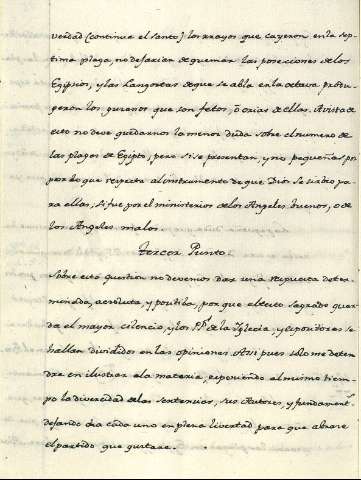 verdad (continue el santo) los rrayos que cayeron en la sep
tima plaga, no defacian de quemar las poseciones de los
Egipcios, y las Langostas de que se abla en la octava produ-
geron los gusanos que son fetos, ō crias de ellas. A vista de
esto no deve quedarnos la menor duda sobre el numero de
las plagas de Egipto, pero si se presentan, y no pequeñas por
por lo que respecta al instrumento de que Dios se sirbio pa
ra ellas, si fue por el ministerio de los Angeles buenos, o de
los Angeles malos.
Tercer Punto.
Sobre esta question no devemos dar una repuesta deter-
minada, acsoluta, y positiba, por que el texto sagrado guar
da el mayor cilencio, y los PP.s de la Yglecia, y expocitores se
hallan divididos en las opiniones. Asi pues solo me deten
dre en ilustrar a la materia, exponiendo al mismo tiem-
po la divercidad de las sentencias, sus Autores, y fundamen.s
dejando a cada uno en plena livertad, para que abrace
el partido que gustare.